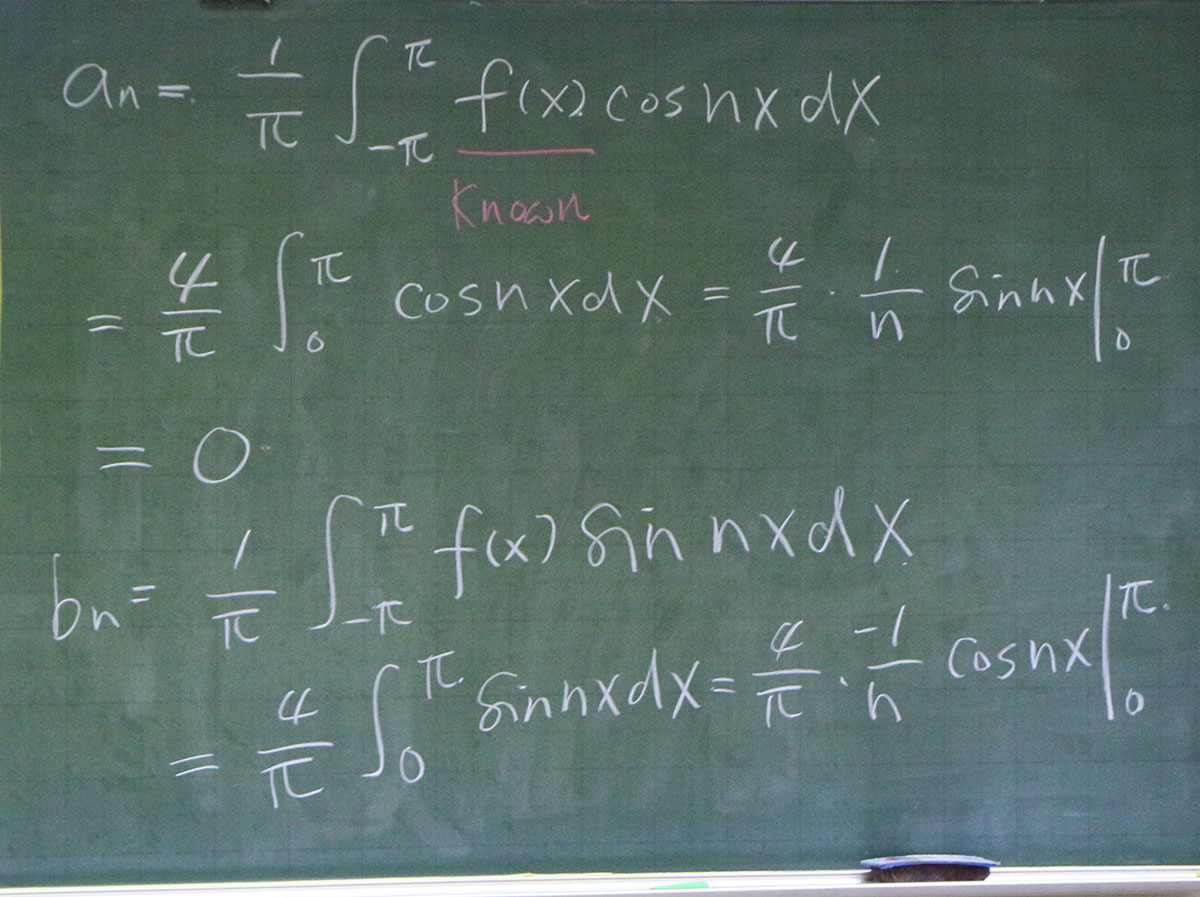 an = 1/π ∫_{-π}^{π} f(x) cosnx dx
Known
= 4/π ∫_0^π cosnxdx = 4/π · 1/n sinnx|_0^π
= 0
bn = 1/π ∫_{-π}^{π} f(x) sin nxdx
= 4/π ∫_0^π sinnxdx = 4/π · -1/n cosnx|_0^π